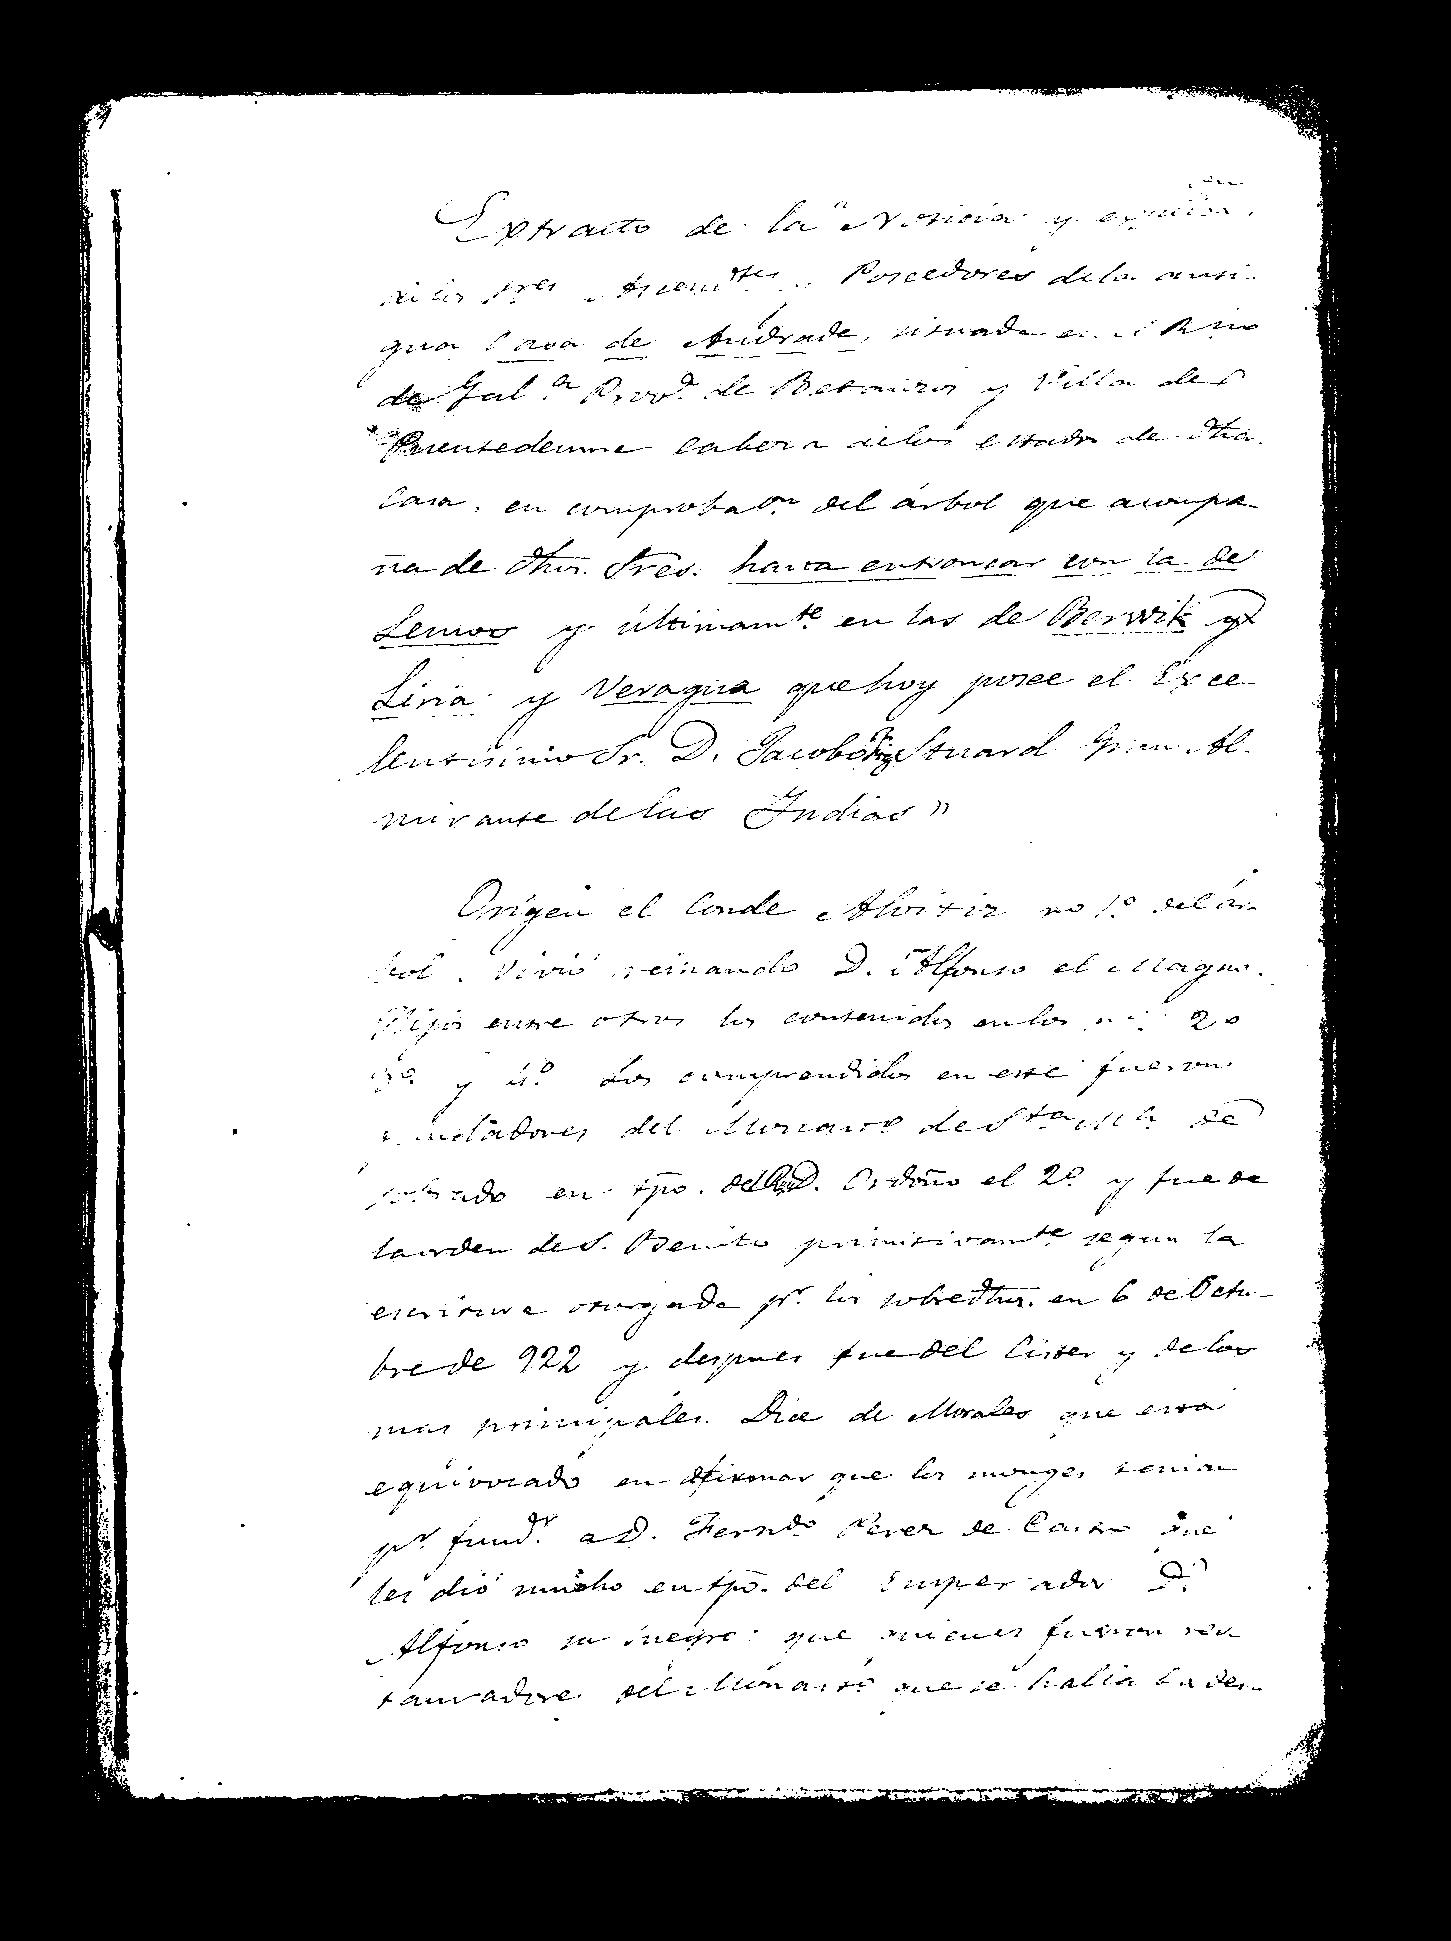 Extracto de la "Noticia y expresion
de los Sres Ascendtes y Poseedores de la anti-
gua Casa de Andrade, situada en el Rno
de Gal.a Prov.a de Betanzos y Villa de
Puentedeume cabeza de los estados de dha.
Casa, en comproba.on del árbol que acompa-
ña de dhos. Sres. hasta entroncar con la de
Lemos y últimam.te en las de Berwik y
Liria y Veragua que hoy posee el Exce-
lentisimo Sr. D. Jacobo Stuard Gran Al-
mirante de las Indias"
Origen el Conde Aloitiz no 1.º del ár-
bol. Vivió reinando D. Alfonso el Magno.
Hijos entre otros los contenidos en los n.os 2º
3º y 4.º Los comprendidos en este fueron
fundadores del Monast.o de Sta M.a de
Sobrado en tpo. del R. D. Ordoño el 2.º y fue de
la orden de S. Benito primitivam.te segun la
escritura otorgada p.r los sobredhos. en 6 de Octu-
bre de 922 y despues fue del Cister y de los
mas principales. Dice de Morales que está
equivocado en afirmar que los monges tenian
p.r fund.r a D. Fernd.o Perez de Castro que
les dió mucho en tpo. del Emperador D.
Alfonso su suegro: que quienes fueron res-
tauradores del Monast.o que se habia